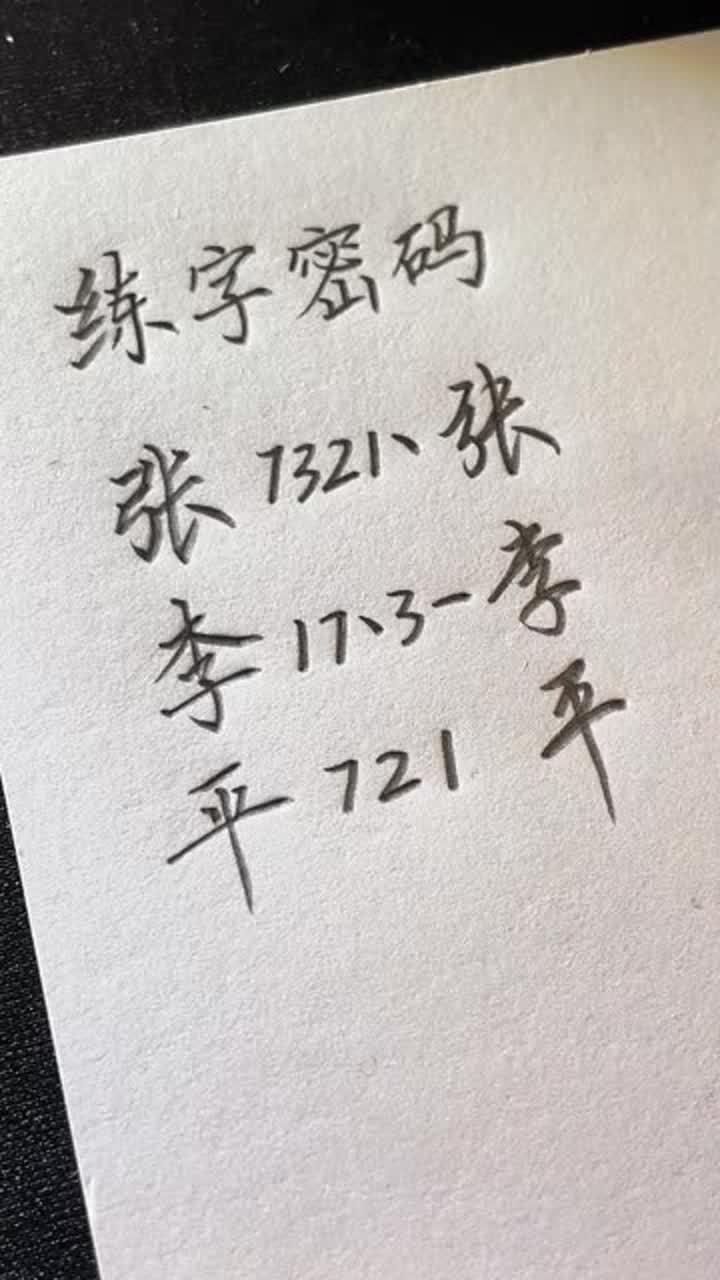 练字密码
张 7321、张
李 17、3一李
平 721 平